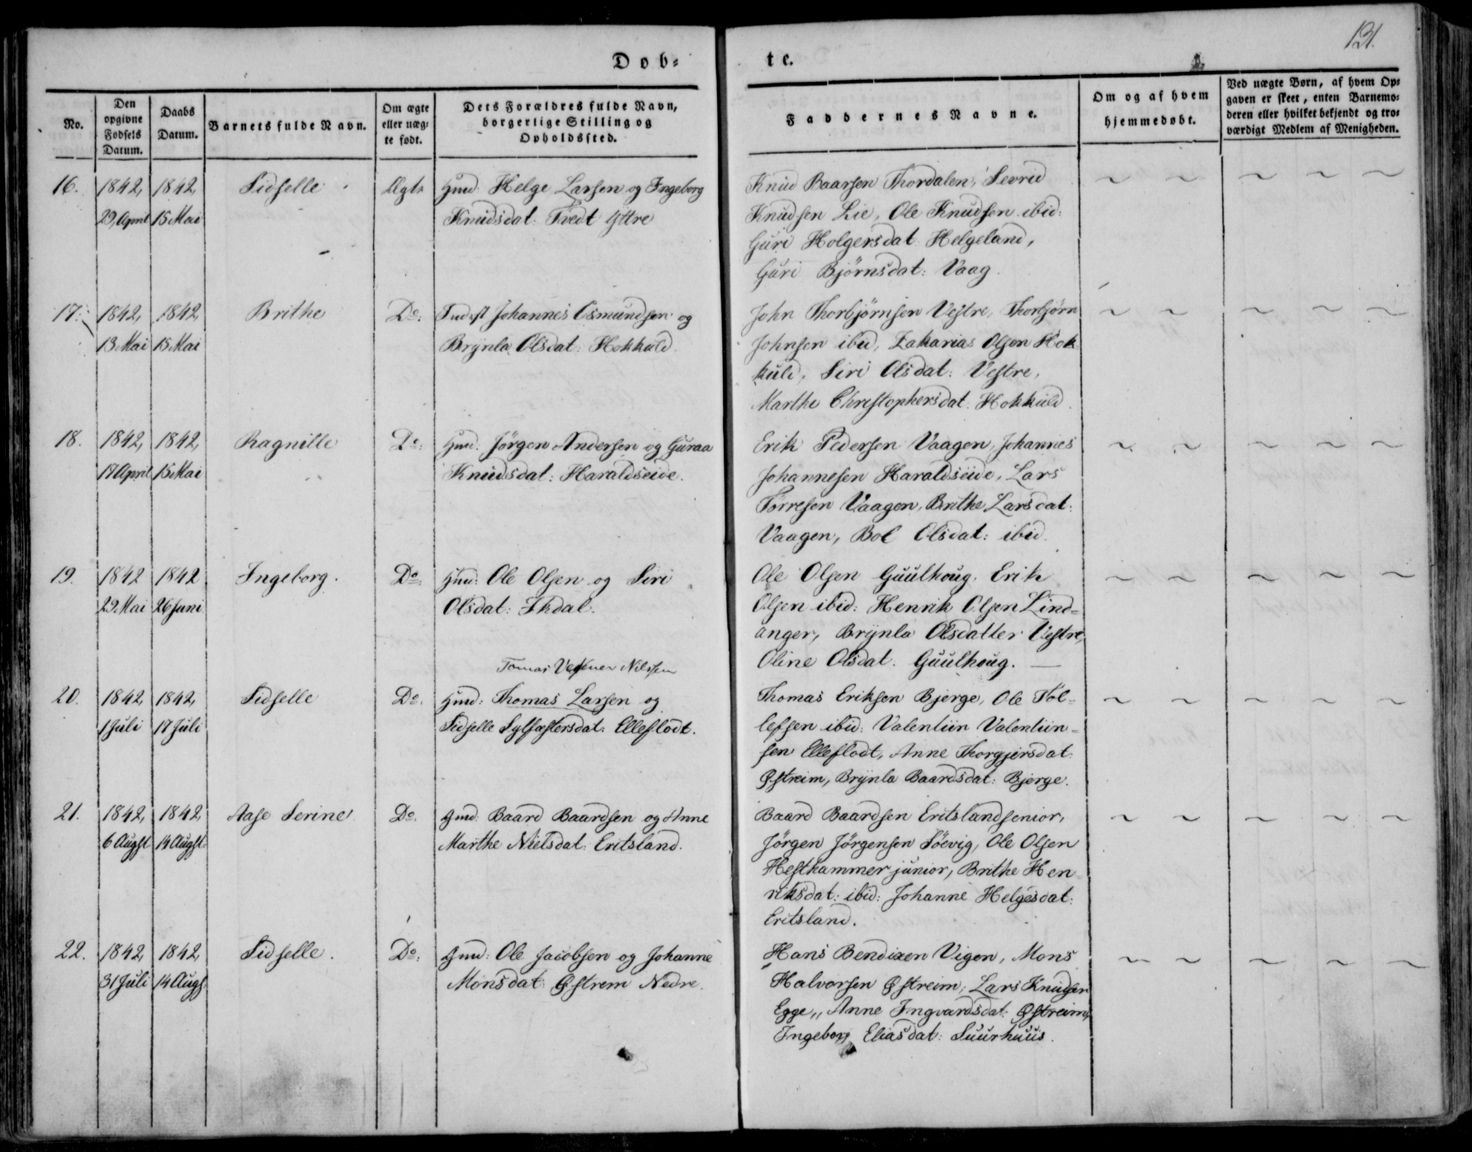 131.
Døb-
te.
No.
Den opgivne Fødsels Datum.
Daabs Datum.
Barnets fulde Navn.
Om ægte eller uægte født.
Dets Forældres fulde Navn, borgerlige Stilling og Opholdssted.
Faddernes Navne.
Om og af hvem hjemmedøbt.
Ved uægte Børn, af hvem Opgaven er skeet, enten Barnemoderen eller hvilket bekjendt og troværdigt Medlem af Menigheden.
16. 1842, 1842, Sidselle Ægte Gmd. Helge Larsen og Ingeborg
29 April 15 Mai Knudsdat: Tvedt Yttre
Knud Baarsen Thordalen, Sevrid
Knudsen Lie, Ole Knudsen ibid:
Guri Holgersdat Helgeland,
Guri Bjørnsdat: Vaag.
17. 1842, 1842, Brithe Do: Indest Johannes Osmundsen og
13 Mai 15 Mai Brynla Olsdat: Hokkuld.
John Thorbjørnsen Vestre, Thorbjørn
Johnsen ibid, Zakarias Olsen Hok
kuld, Siri Olsdat: Vestre,
Marthe Christophersdat: Hokkuld.
18. 1842, 1842, Ragnille Do: Gmd: Jørgen Andersen og Guraa
17 April 15 Mai Knudsdat: Haraldseide.
Erik Pedersen Vaagen, Johannes
Johannesen Haraldseide, Lars
Torresen Vaagen, Brithe Larsdat:
Vaagen, Bol Olsdat: ibid.
19. 1842 1842 Ingeborg. Do Gmd: Ole Olsen og Siri
29 Mai 26 Juni Olsdat: Ekdal.
Ole Olsen Guulhoug. Erik
Olsen ibid: Henrik Olsen Lind-
anger, Brynla Olsdatter Vestre,
Oline Olsdat. Guulhoug.
Tomas Nilssen
20. 1842, 1842, Sidselle Do. Gmd: Thomas Larsen og
1 Juli 17 Juli Sidselle Sylfæstersdat: Elleflodt.
Thomas Eriksen Bjerge, Ole Tol-
lefsen ibid: Valentin Valentin-
sen Elleflodt, Anne Thorgjersdat
Østreim, Brynla Baardsdat: Bjerge.
21. 1842, 1842, Aase Serine Do. Gmd: Baard Baardsen og Anne
6 Augst 14 Augst Marthe Nielsdat: Eritsland.
Baard Baardsen Eritsland senior,
Jørgen Jørgensen Søevig, Ole Olsen
Hestkammer junior, Brithe Hen-
riksdat: ibid: Johanne Helgesdat:
Eritsland.
22. 1842, 1842, Sidselle. Do: Gmd: Ole Jacobsen og Johanne
31 Juli 14 Augst Monsdat: Østrem Nedre.
Hans Bendixen Vigen, Mons
Halvorsen Østreim, Lars Knudsen
Egge, Anne Ingvardsdat: Østreim,
Ingeborg Eliasdat: Suurhuus.